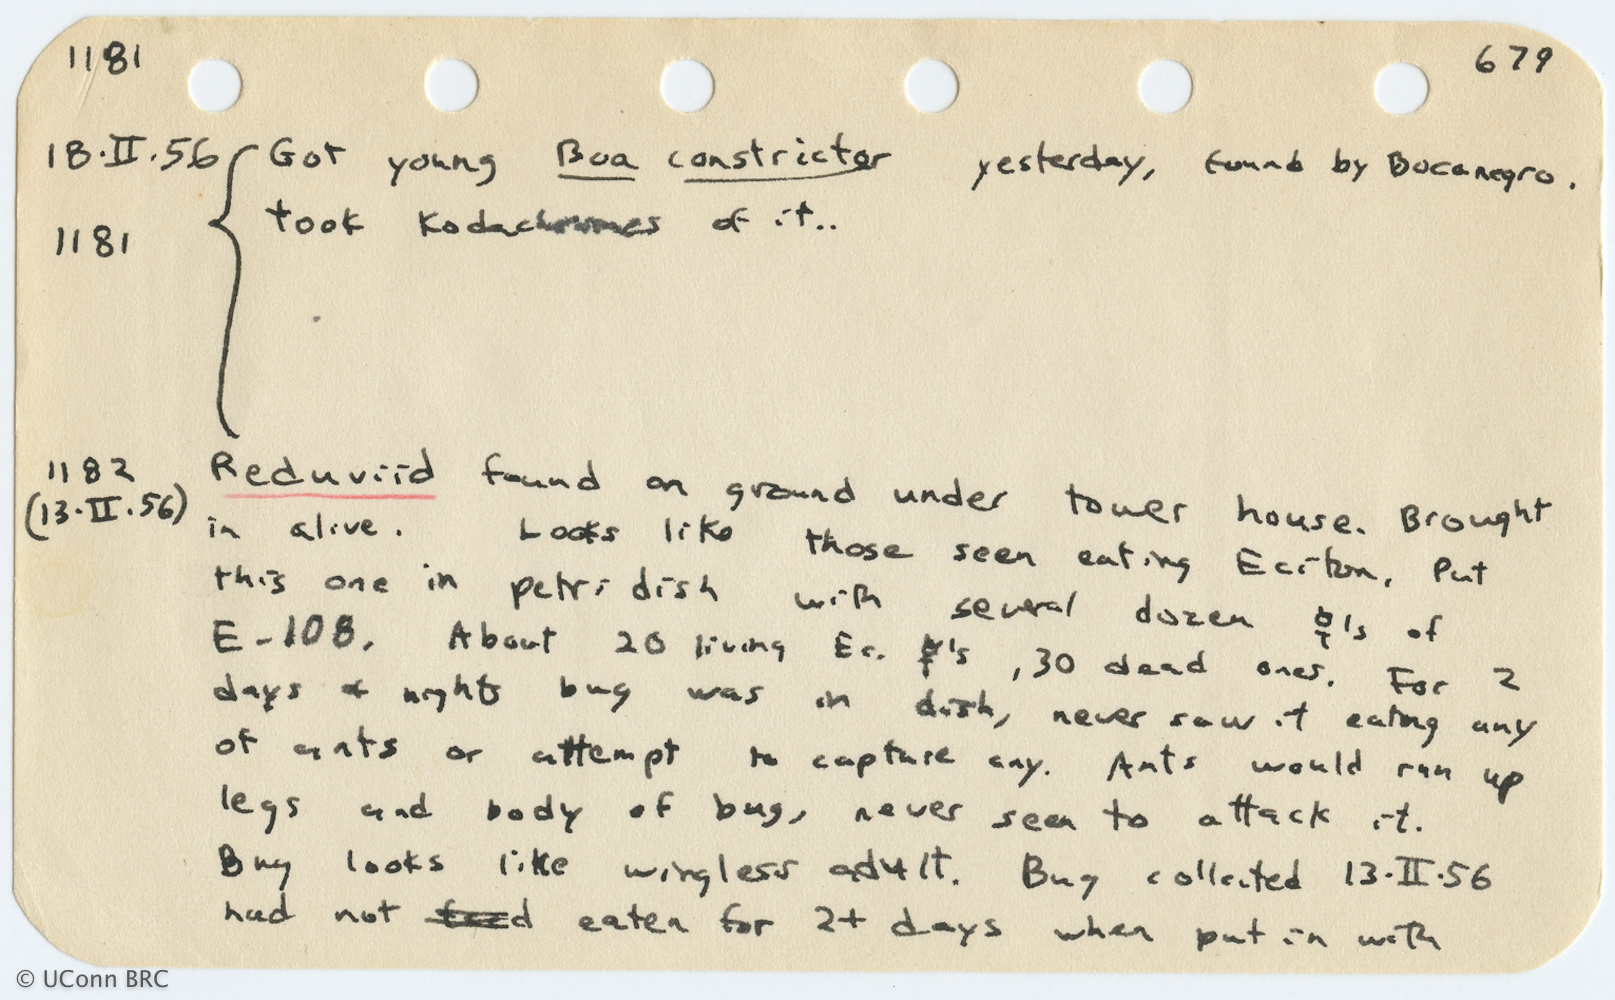 1181
679
18·II·56 Got young Boa constrictor yesterday, found by Bocanegro.
1181 took Kodachromes of it..
1182 Reduviid found on ground under tower house. Brought
(13·II·56) in alive. Looks like those seen eating Eciton. Put
this one in petri dish with several dozen ☿'s of
E-108. About 20 living Ec. ☿'s, 30 dead ones. For 2
days & nights bug was in dish, never saw it eating any
of ants or attempt to capture any. Ants would run up
legs and body of bug, never seen to attack it.
Bug looks like wingless adult. Bug collected 13·II·56
had not eaten for 2+ days when put in with
© UConn BRC